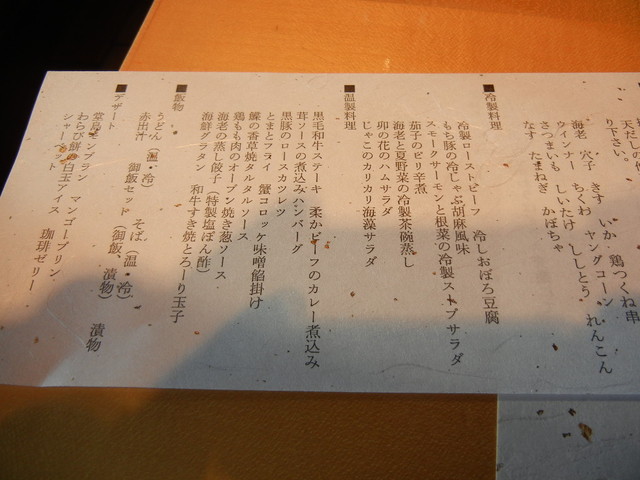 り下さい。
海老 穴子 きす いか 鶏つくね串
ウインナー ちくわ ヤングコーン れんこん
さつまいも しいたけ ししとう
なす たまねぎ かぼちゃ
■冷製料理
冷製ローストビーフ 冷しおぼろ豆腐
もち豚の冷しゃぶ胡麻風味
スモークサーモンと根菜の冷製ストブサラダ
茄子のピリ辛煮
海老と夏野菜の冷製茶碗蒸し
卯の花のハムサラダ
じゃこのカリカリ海藻サラダ
■温製料理
黒毛和牛ステーキ 柔かビーフのカレー煮込み
茸ソースの煮込みハンバーグ
黒豚のロースカツレツ
とまとフライ 蟹コロッケ味噌餡掛け
鰈の香草焼タルタルソース
鶏もも肉のオーブン焼き葱ソース
海老の蒸し餃子(特製塩ぽん酢)
海鮮グラタン 和牛すき焼とろーり玉子
■飯物
うどん(温・冷) そば(温・冷)
赤出汁 御飯セット(御飯、漬物) 漬物
■デザート
堂島モンブラン マンゴープリン
わらび餅の白玉アイス 珈琲ゼリー
シャーベット